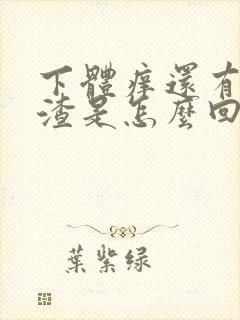 下體痒還有
渣是怎麼回
葉紫绿